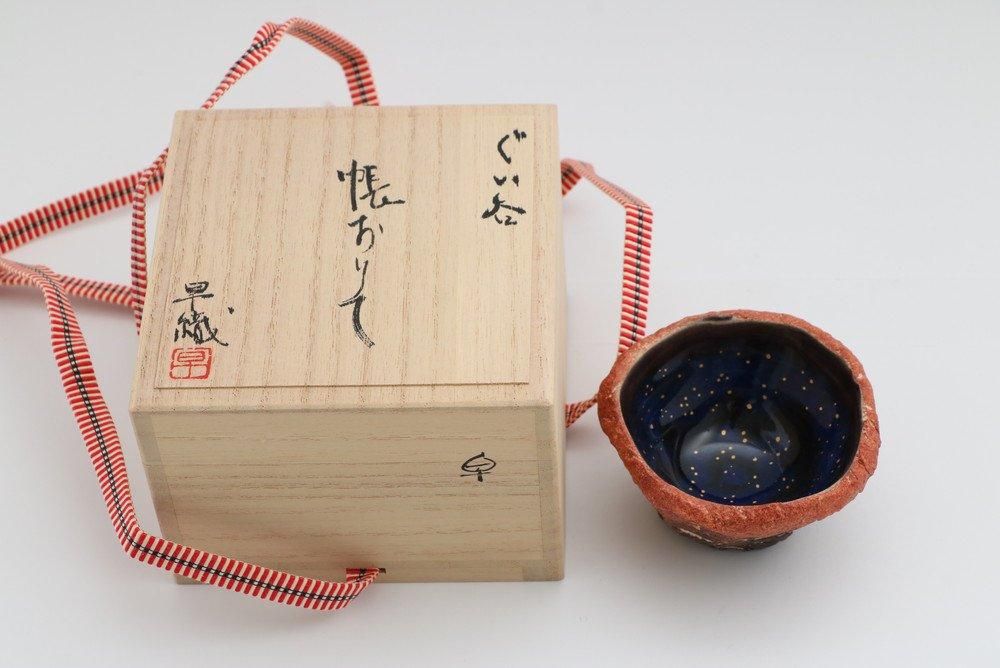 ぐい呑
帳おりて
早織
早